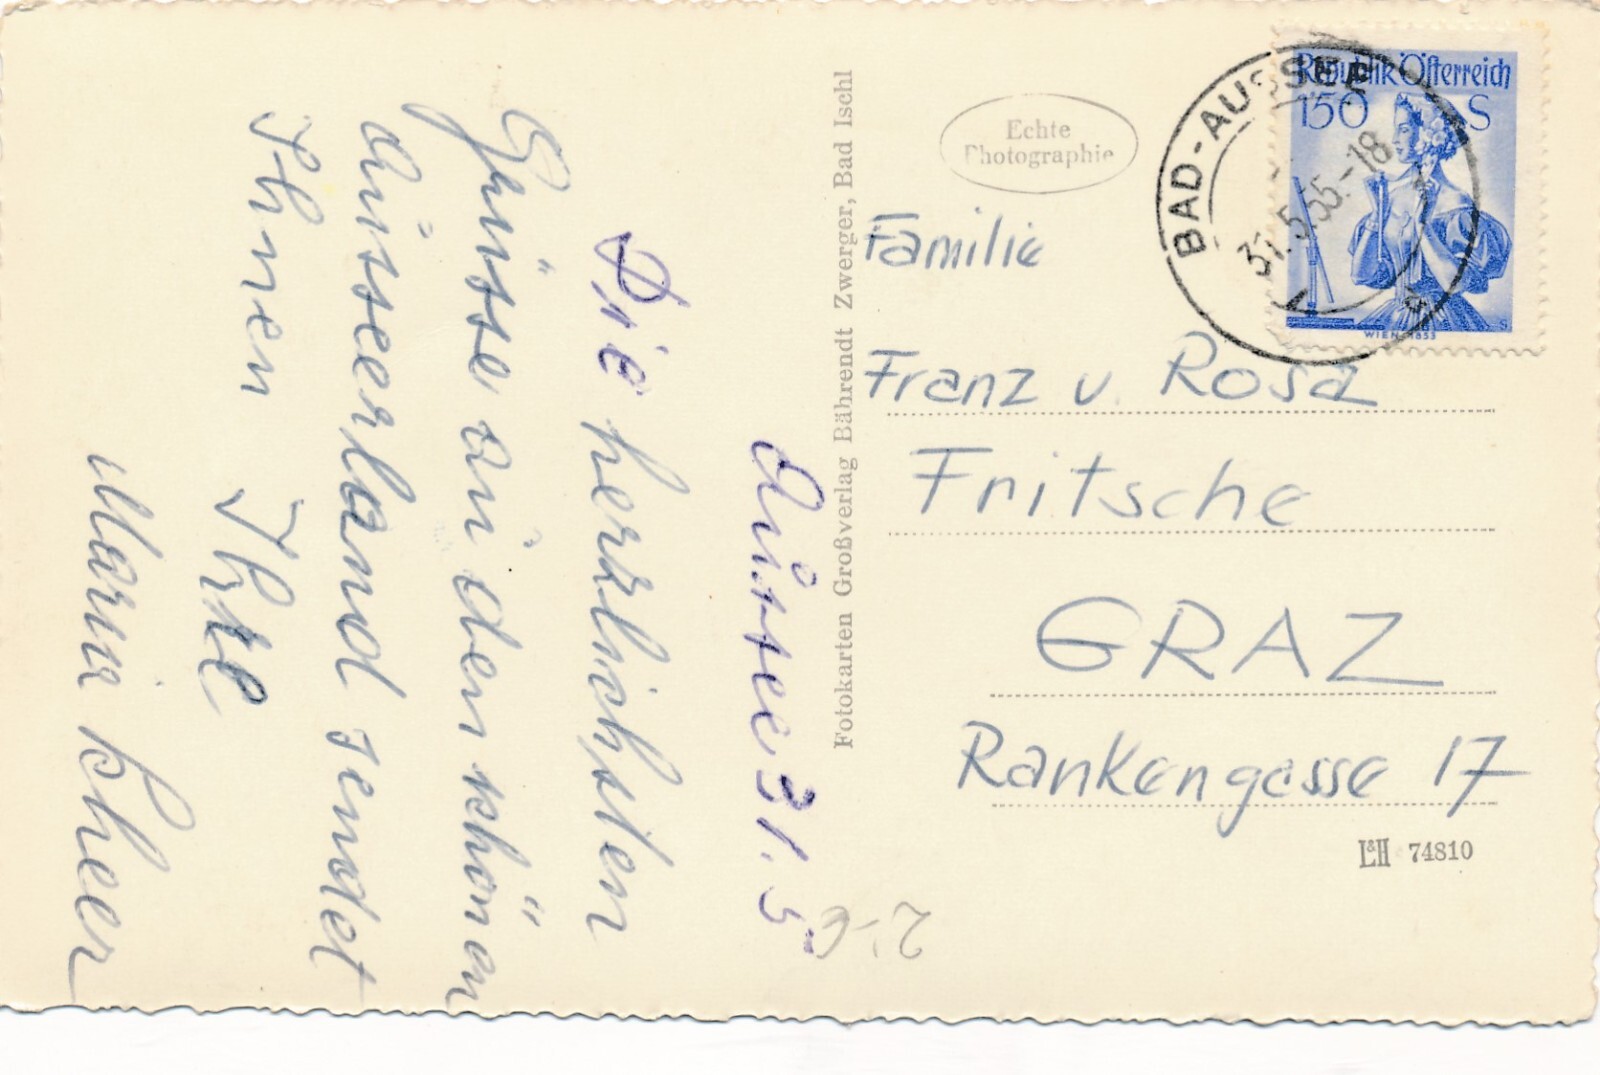 Aussee 31.5
Die herzlichsten
Grüsse au den schönen
Ausseerland sendet
Ihnen Ihre
Maria Scheer
Fotokarten Großverlag Bährendt Zwerger, Bad Ischl
Echte
Photographie
Republik Österreich
150 S
WIEN 1853
BAD-AUSSEE
31.5.55.-18
Familie
Franz u. Rosa
Fritsche
GRAZ
Rankengasse 17
L&H 74810